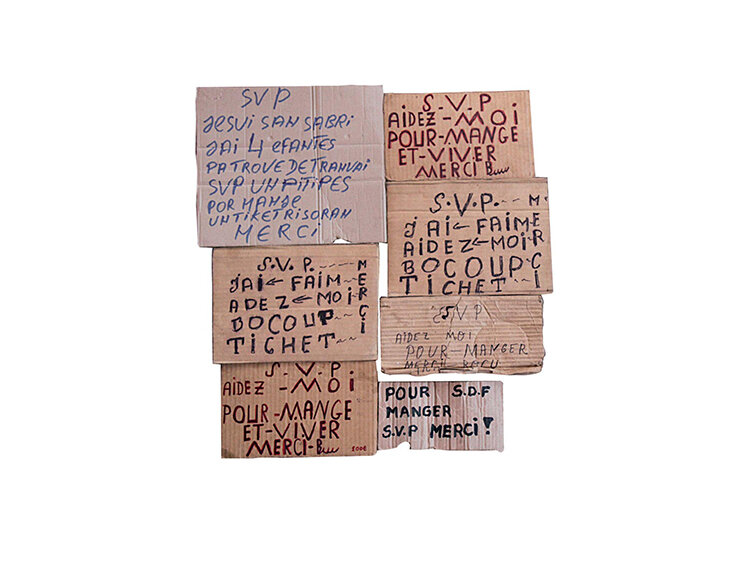 SVP
JESUI SAN SABRI
JAI 4 EFANTES
PATROVE DETRAVAI
SVP UN PITIPES
POR MANJE
UN TIKET RISORAN
MERCI
S.V.P
AIDEZ-MOI
POUR-MANGE
ET-VIVER
MERCI B
S.V.P. M
JAI FAIM E
AIDEZ MOI R
BOCOUP C
TICHET I
S.V.P. M
JAI FAIM E
ADEZ MOI R
BOCOUP C
TICHET I
SVP
AIDEZ MOI
POUR-MANGER
MERCI BOCU
S.V.P
AIDEZ-MOI
POUR-MANGE
ET-VIVER
MERCI-B
POUR S.D.F
MANGER
S.V.P MERCI!